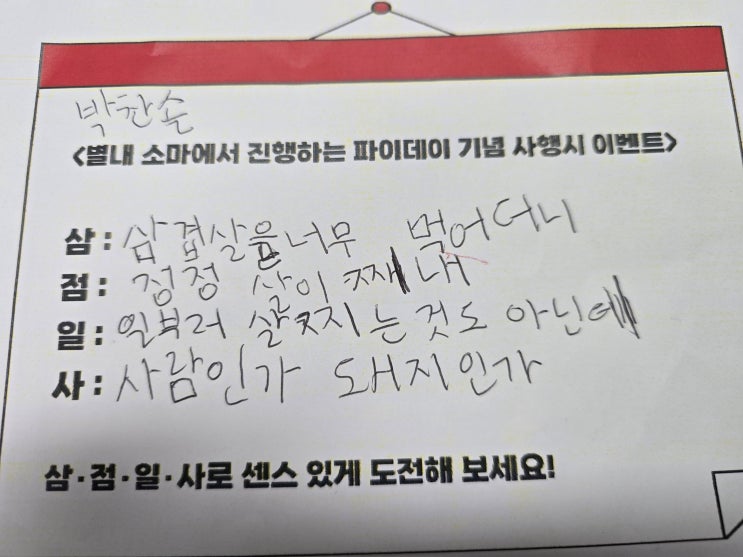 박찬솔
<별내 소마에서 진행하는 파이데이 기념 사행시 이벤트>
삼: 삼겹살을너무 먹어더니
점: 정정 살이 째내
일: 일부러 살찌는것도 아닌데
사: 사람인가 돼지인가
삼·점·일·사로 센스 있게 도전해 보세요!